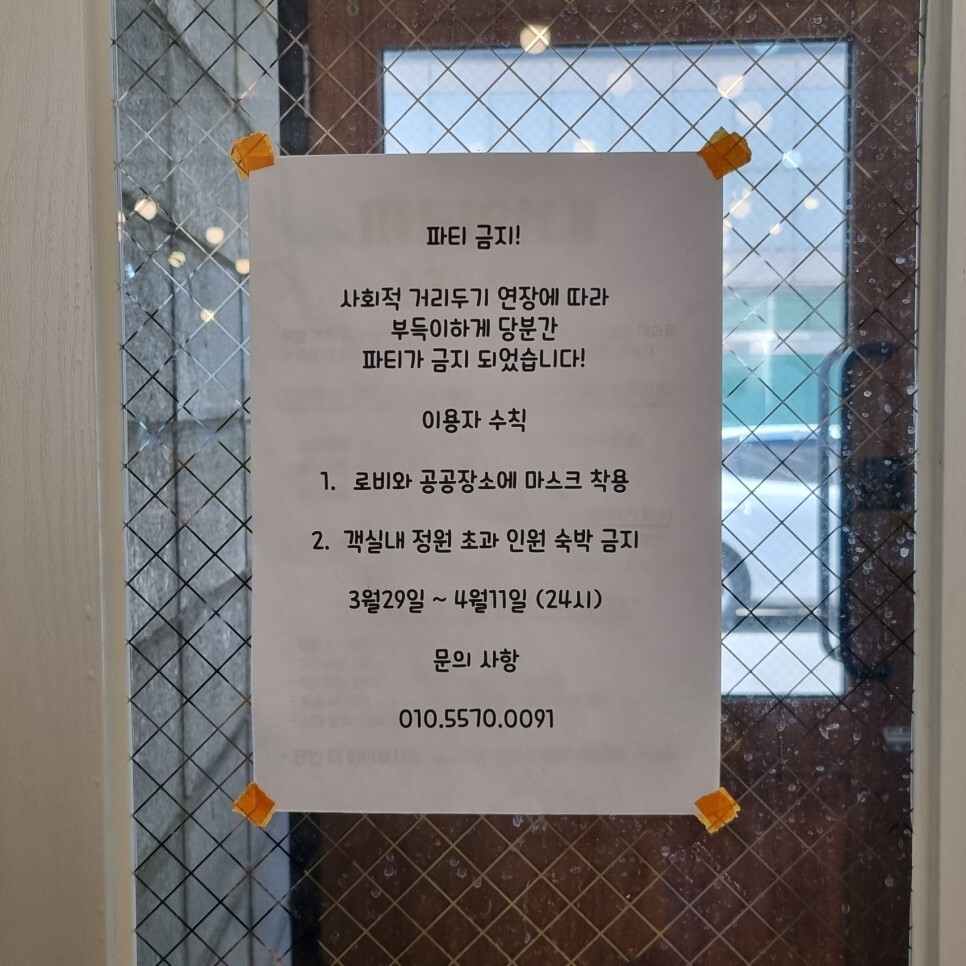 파티 금지!
사회적 거리두기 연장에 따라
부득이하게 당분간
파티가 금지 되었습니다!
이용자 수칙
1. 로비와 공공장소에 마스크 착용
2. 객실내 정원 초과 인원 숙박 금지
3월29일 ~ 4월11일 (24시)
문의 사항
010.5570.0091